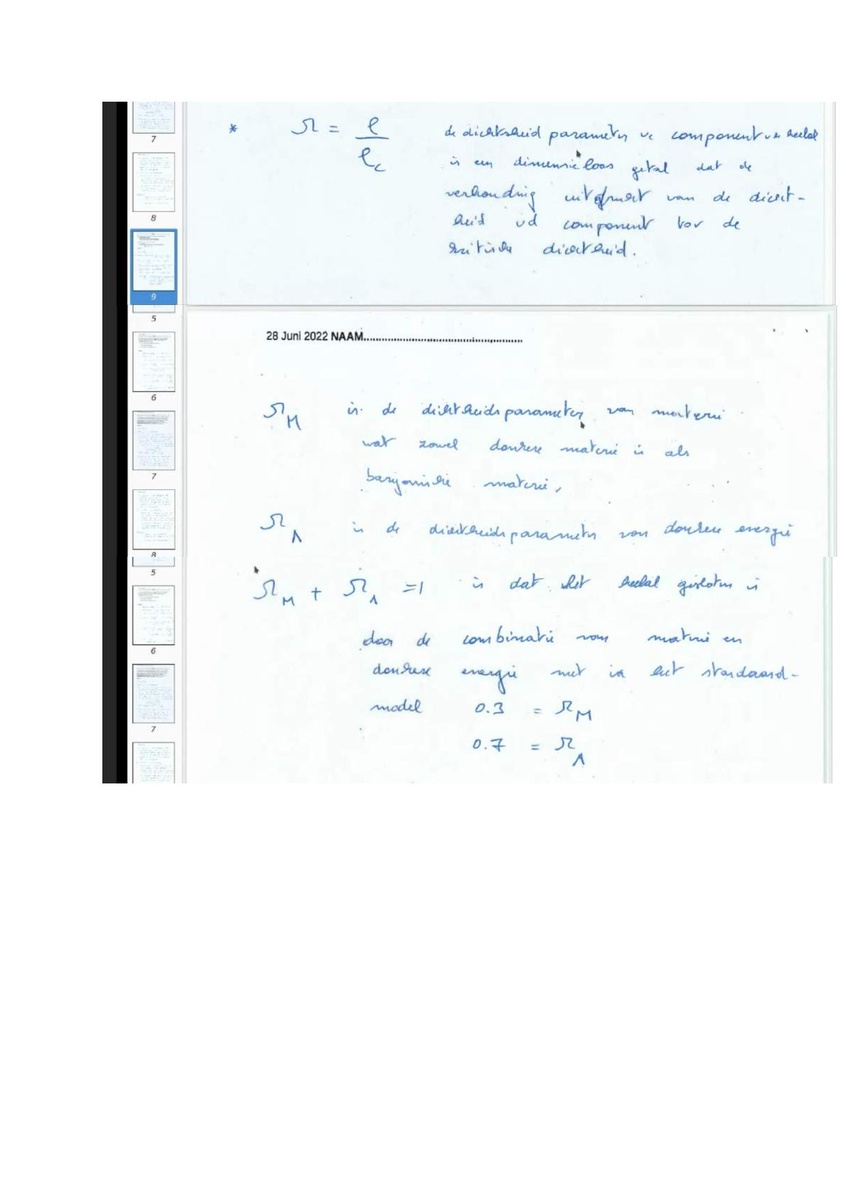 7
8
9
5
6
7
8
5
6
7
* Ω = ρ / ρc de dichtheid parameter vc component vh heelal
is een dimensieloos getal dat de
verhouding uitdrukt van de dicht-
heid vd component tov de
kritische dichtheid.
28 Juni 2022 NAAM..................................................
ΩM is de dichtheidsparameter van materie
wat zowel donkere materie is als
baryonische materie,
ΩΛ is de dichtheidsparameter van donkere energie
ΩM + ΩΛ = 1 is dat het heelal gesloten is
door de combinatie van materie en
donkere energie met in het standaard-
model 0.3 = ΩM
0.7 = ΩΛ